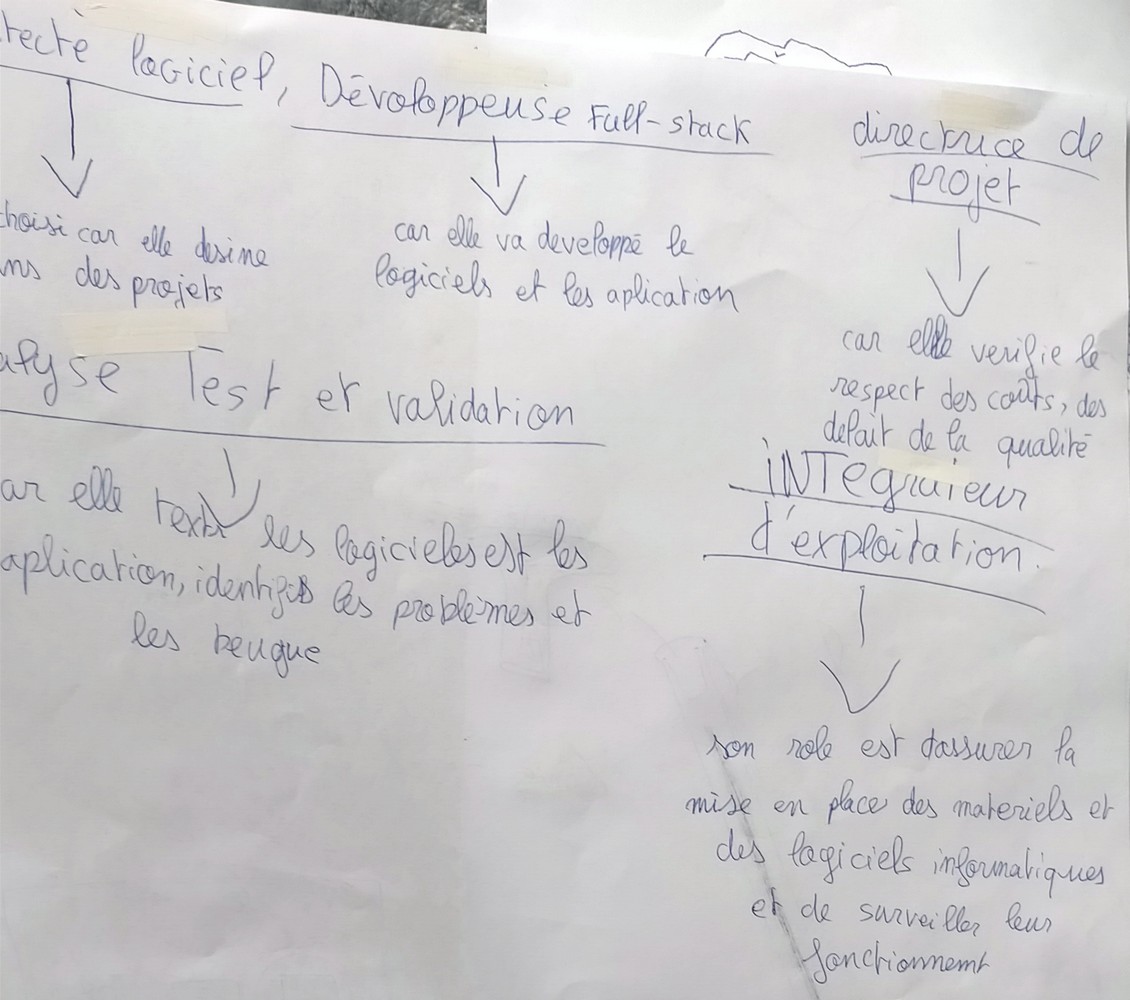 tecte logiciel, Dévoloppeuse Full-stack
choisi car elle desine
ns des projets
car elle va developpé le
logiciels et les aplication
directrice de
projet
car elle verifie le
respect des coûts, des
delait de la qualité
alyse Test et validation
ar elle les logicieles est les
aplication, identifis les problèmes et
les beugue
iNTegrateur
d'exploitation.
son role est dassurer la
mise en place des materiels et
des logiciels informatiques
et de surveiller leur
fonctionnemt